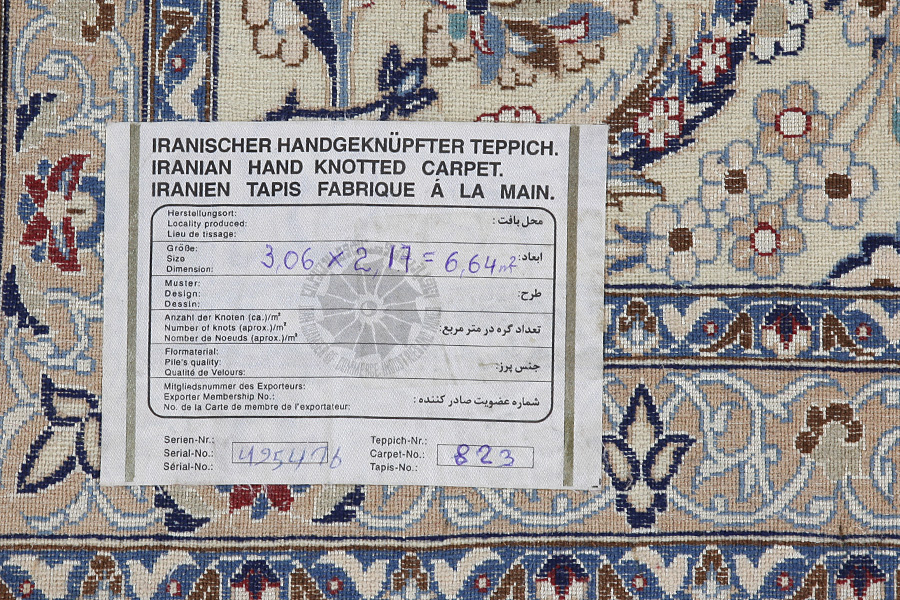 IRANISCHER HANDGEKNÜPFTER TEPPICH.
IRANIAN HAND KNOTTED CARPET.
IRANIEN TAPIS FABRIQUE Á LA MAIN.
Herstellungsort:
Locality produced: محل بافت :
Lieu de tissage:
Größe:
Size 3,06 x 2,17 = 6,64 m² ابعاد:
Dimension:
Muster:
Design: طرح:
Dessin:
Anzahl der Knoten (ca.)/m²
Number of knots (aprox.)/m² تعداد گره در متر مربع:
Nomber de Noeuds (aprox.)/m²
Flormaterial:
Pile's quality: جنس پرز:
Qualité de Velours:
Mitgliedsnummer des Exporteurs:
Exporter Membership No.: شماره عضویت صادر کننده :
No. de la Carte de membre de l'exportateur:
Serien-Nr.: Teppich-Nr.:
Serial-No.: 495476 Carpet-No.: 823
Sérial-No.: Tapis-No.: